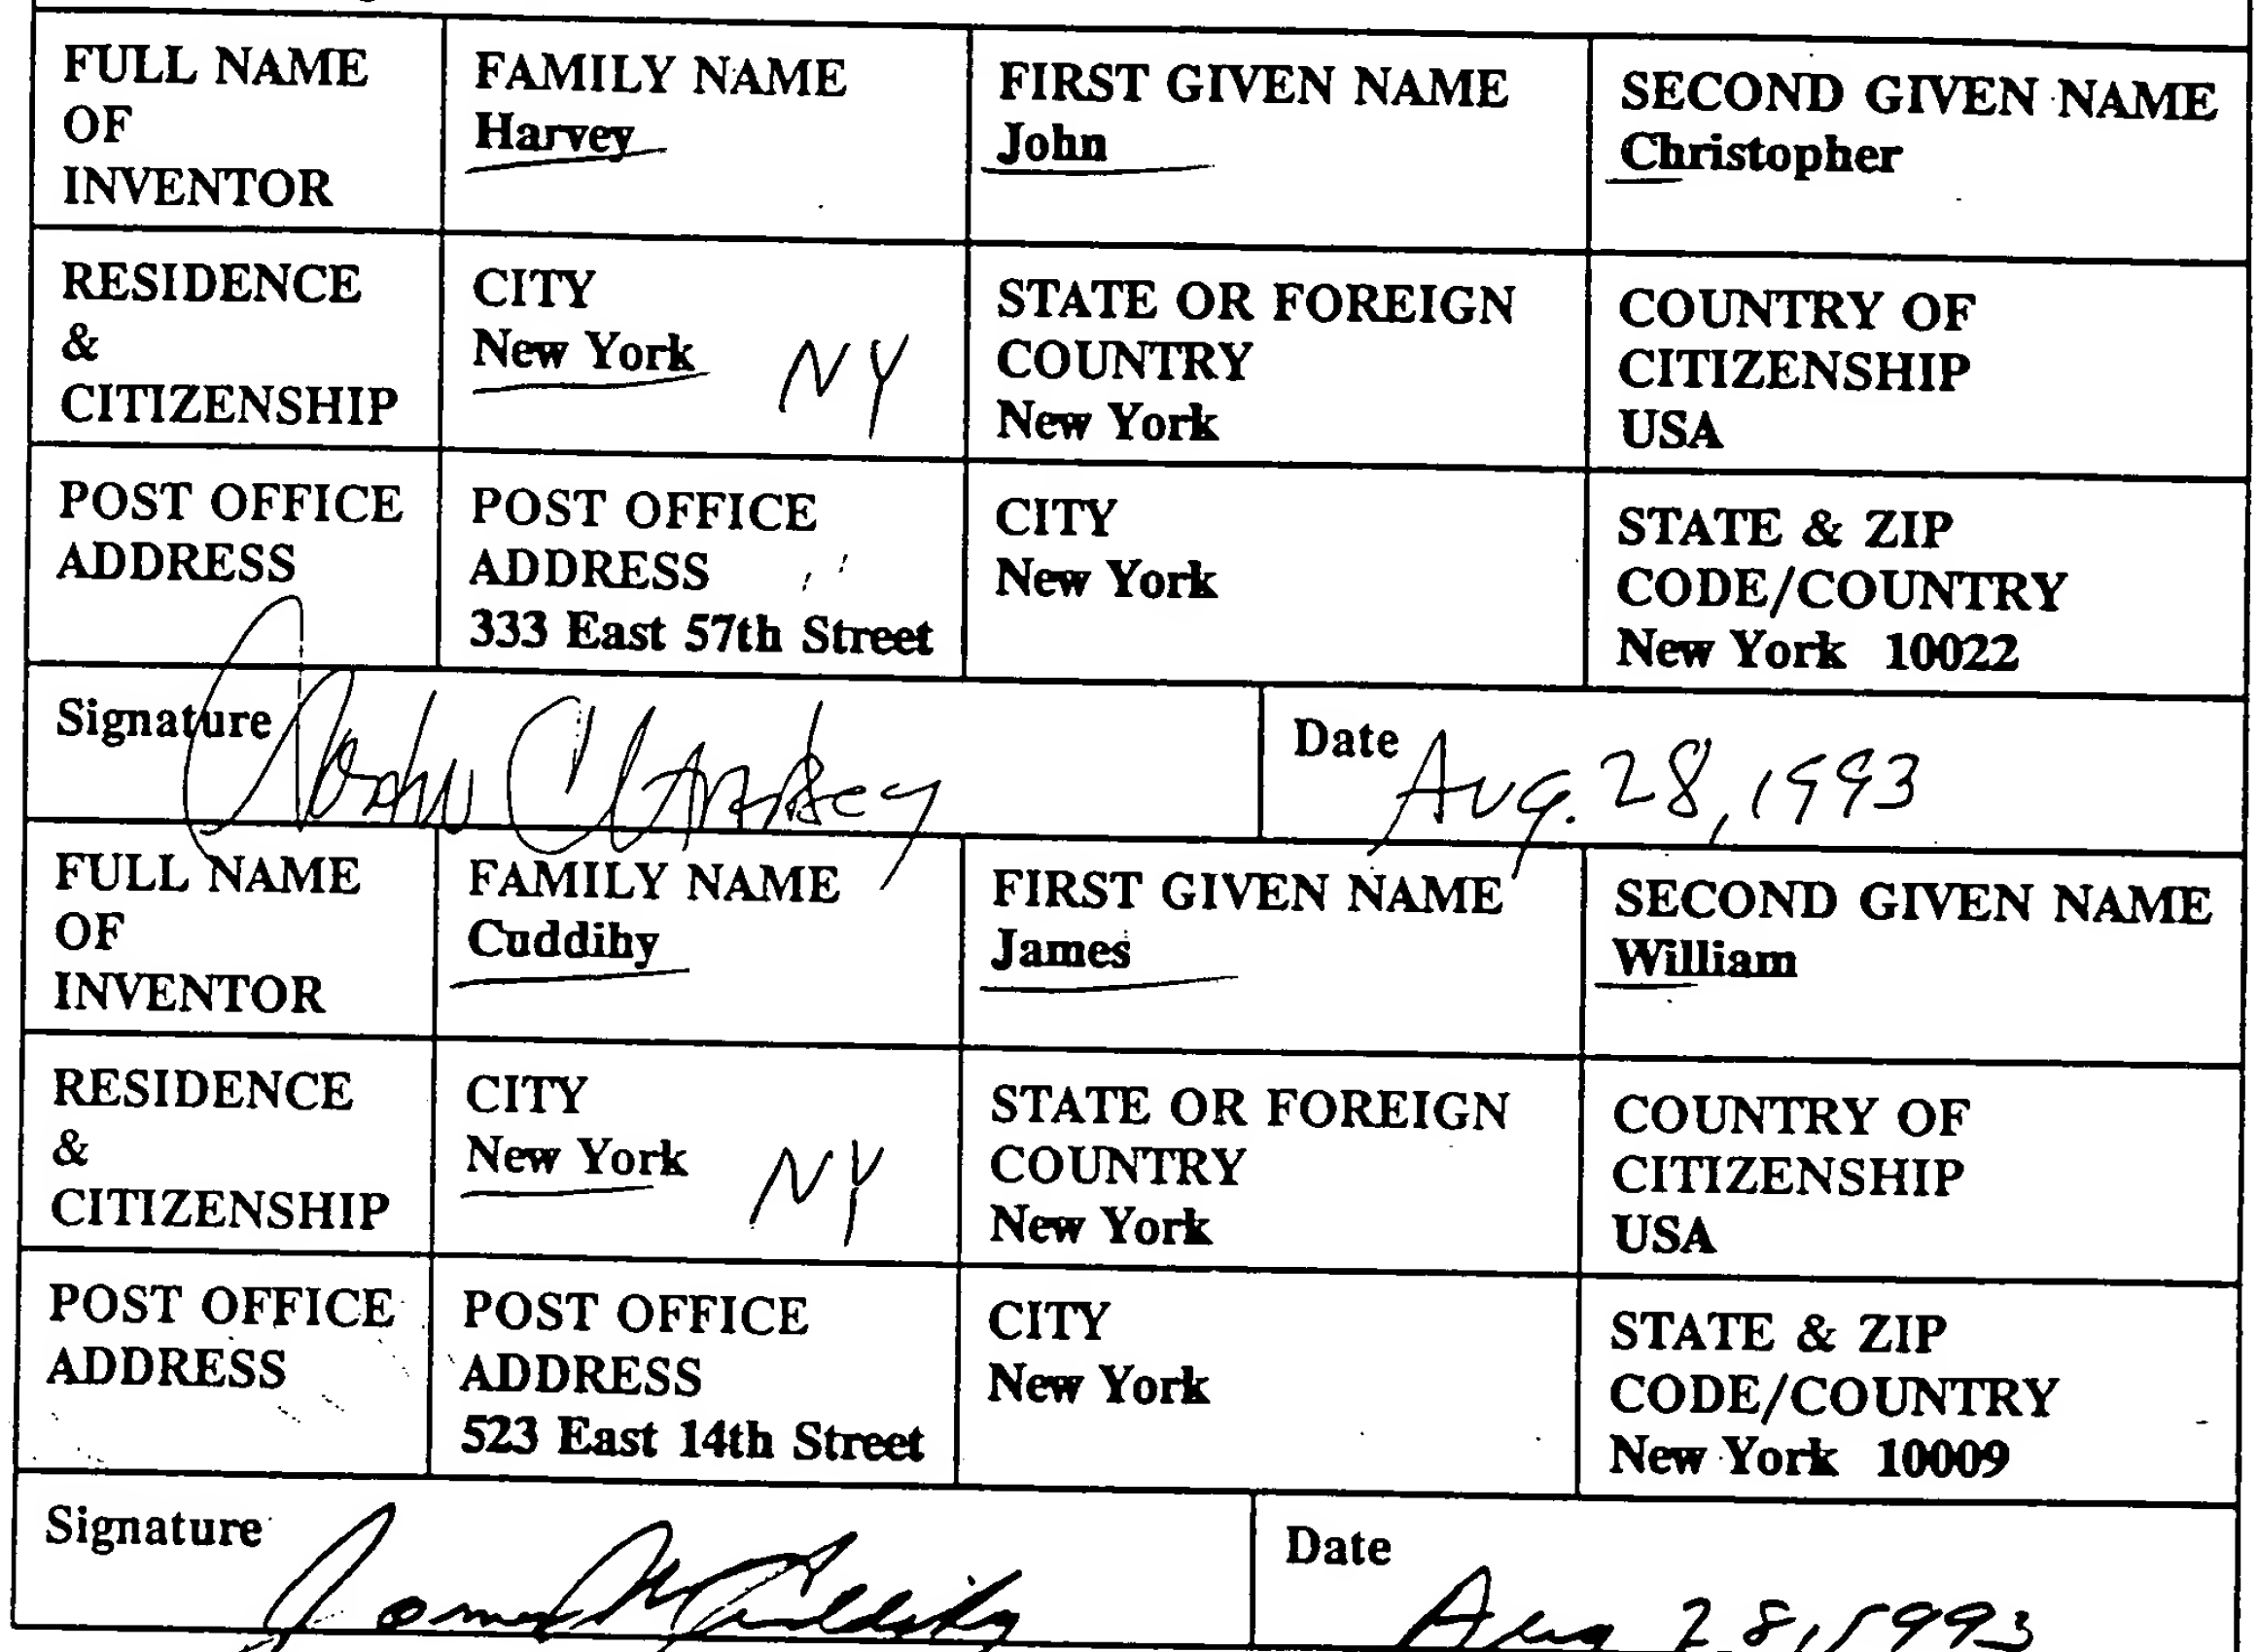 FULL NAME OF INVENTOR
FAMILY NAME
Harvey
FIRST GIVEN NAME
John
SECOND GIVEN NAME
Christopher
RESIDENCE & CITIZENSHIP
CITY
New York NY
STATE OR FOREIGN COUNTRY
New York
COUNTRY OF CITIZENSHIP
USA
POST OFFICE ADDRESS
POST OFFICE ADDRESS
333 East 57th Street
CITY
New York
STATE & ZIP CODE/COUNTRY
New York 10022
Signature
John C Harvey
Date Aug. 28, 1993
FULL NAME OF INVENTOR
FAMILY NAME
Cuddihy
FIRST GIVEN NAME
James
SECOND GIVEN NAME
William
RESIDENCE & CITIZENSHIP
CITY
New York NY
STATE OR FOREIGN COUNTRY
New York
COUNTRY OF CITIZENSHIP
USA
POST OFFICE ADDRESS
POST OFFICE ADDRESS
523 East 14th Street
CITY
New York
STATE & ZIP CODE/COUNTRY
New York 10009
Signature
James W Cuddihy
Date Aug 28, 1993